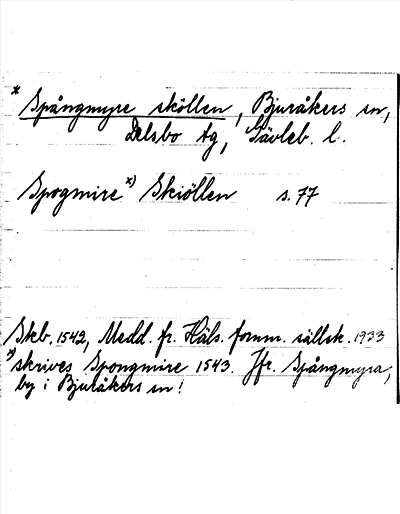 * Spångmyre sköllen, Bjuråkers sn,
Delsbo tg, Gävleb. l.
Spogmire x) Skiöllen s. 77
Skeb. 1542, Medd. fr. Häls. fornm. sällsk. 1933
x) skrives Spongmire 1543. Jfr. Spångmyra,
by i Bjuråkers sn!